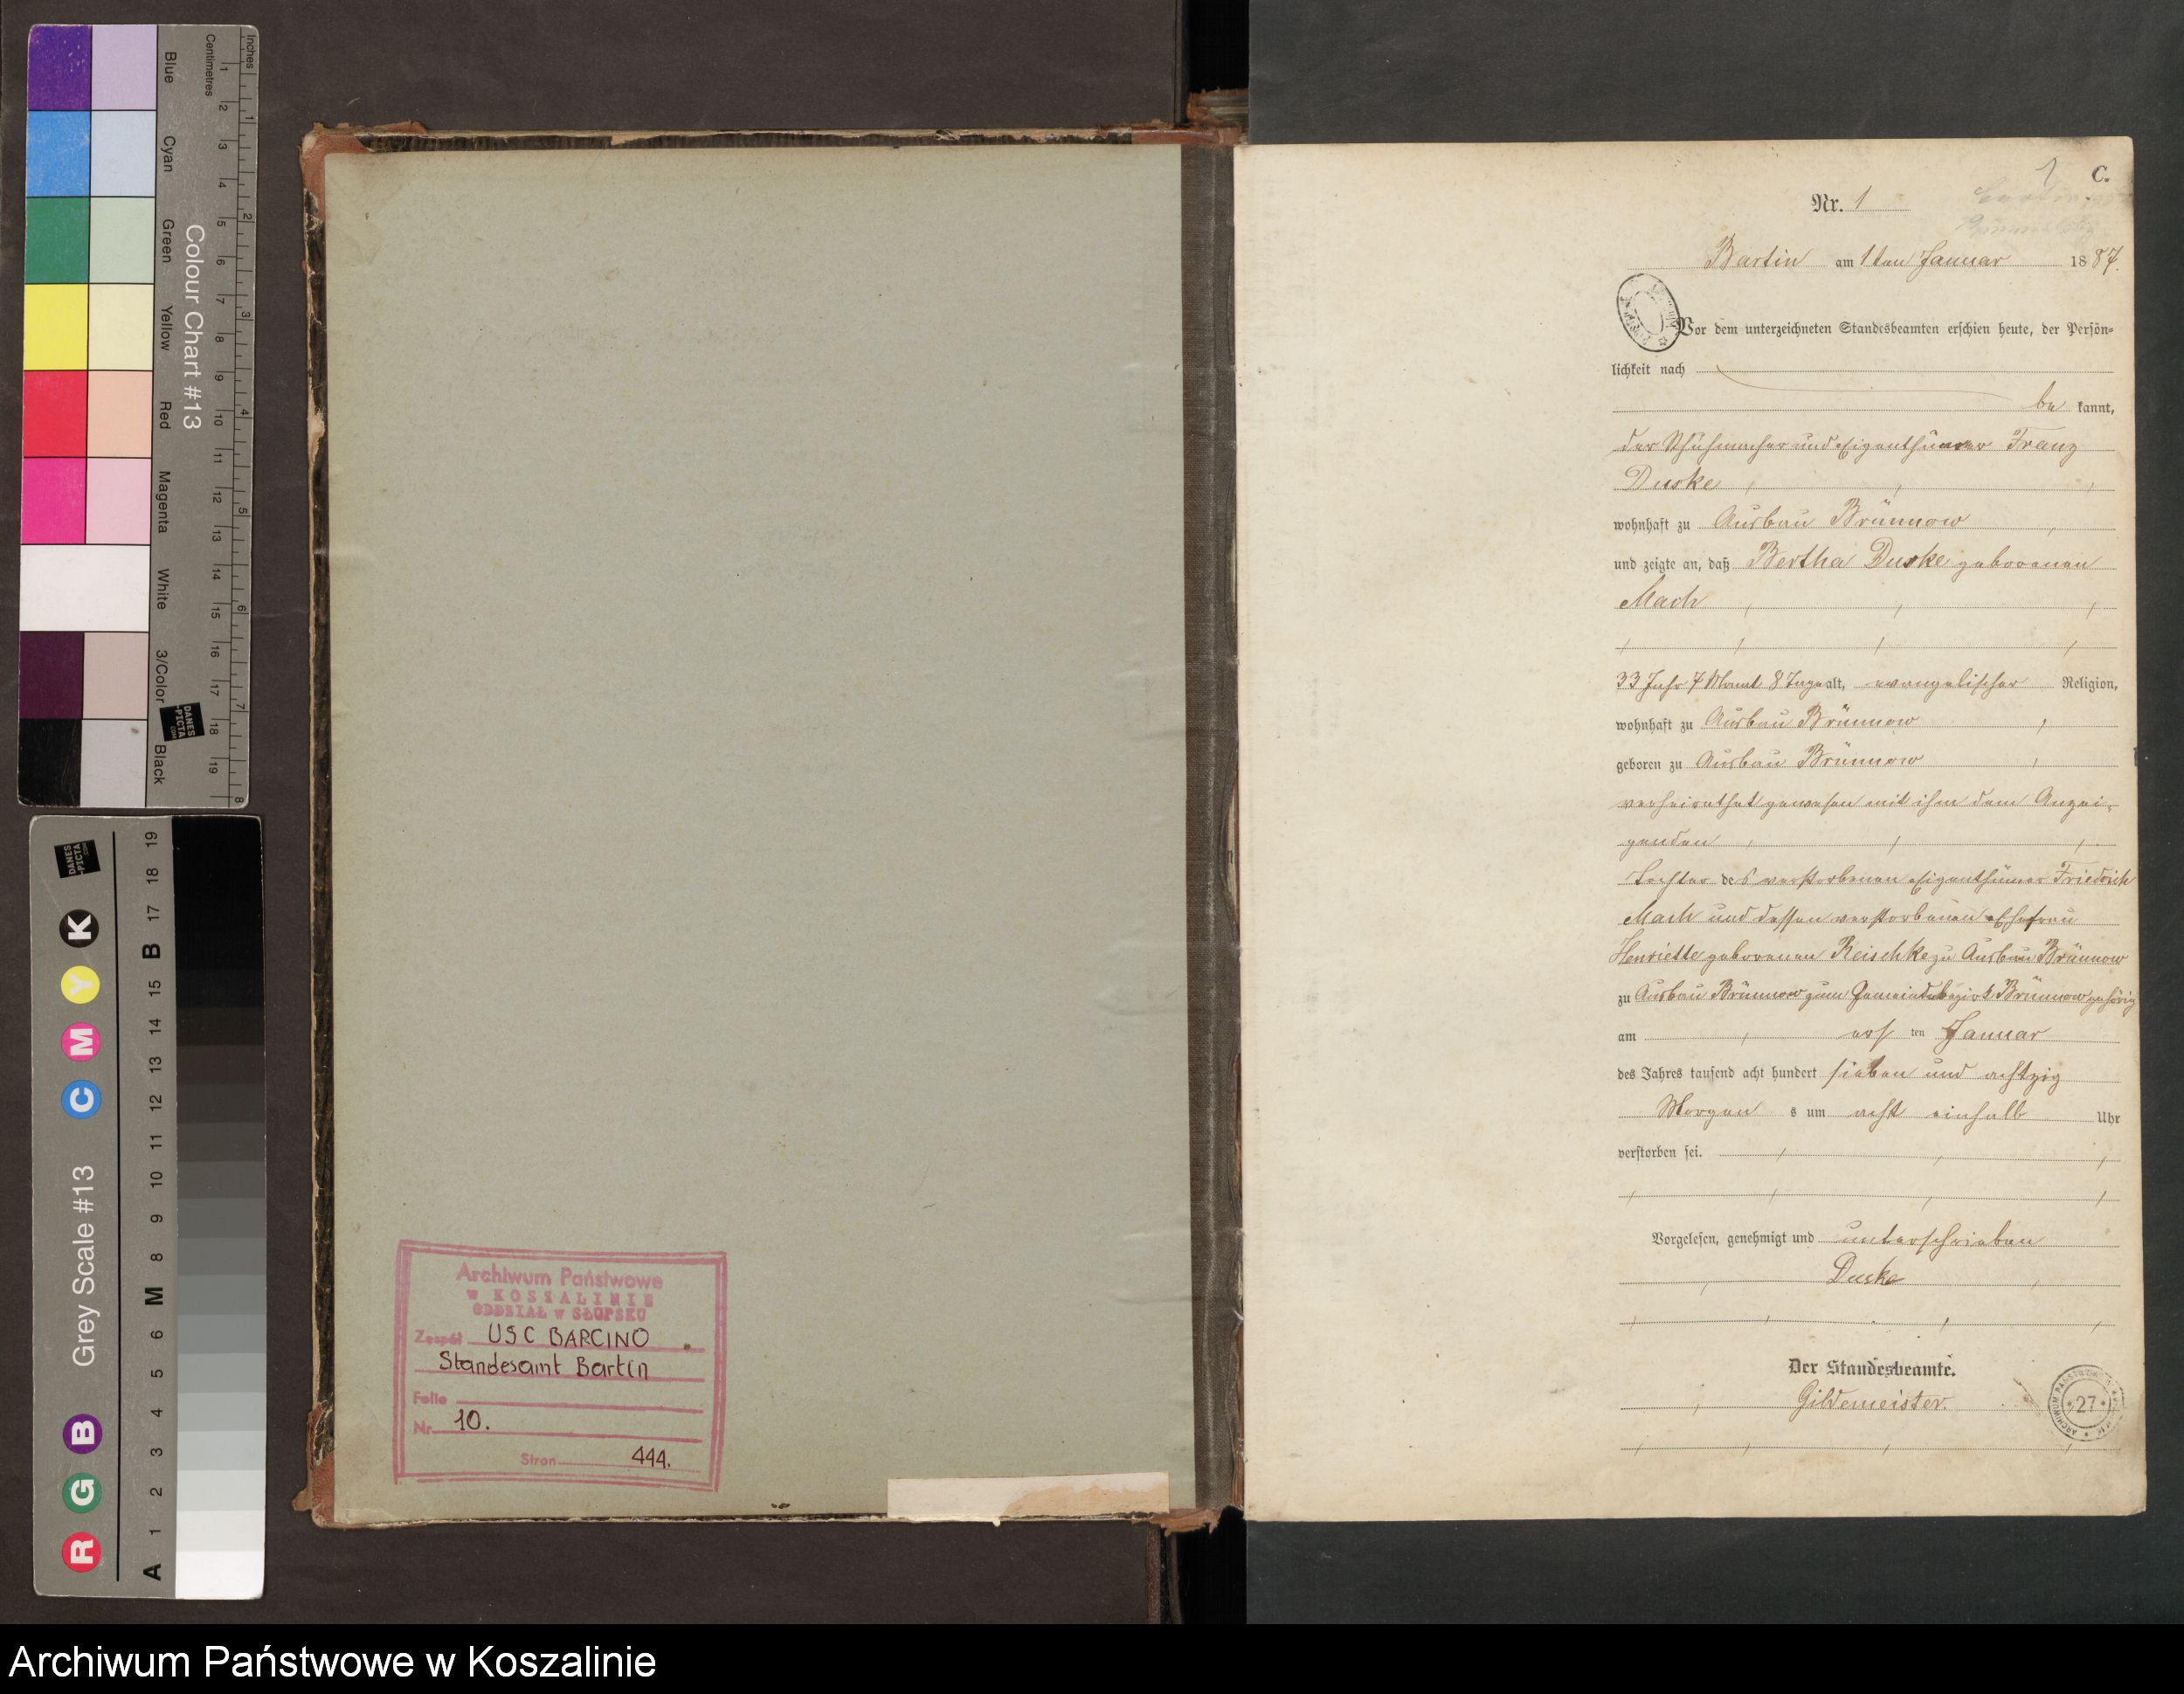 Blue Cyan Green Yellow Red Magenta White 3/Color Black
Colour Chart #13
Centimetres
Inches
1 2 3 4 5 6 7 8 9 10 11 12 13 14 15 16 17 18 19
1 2 3 4 5 6 7 8
DANES
-PICTA
.COM
Grey Scale #13
R G B C M Y K
A 1 2 3 4 5 6 M 8 9 10 11 12 13 14 15 B 17 18 19
DANES
-PICTA
.COM
Archiwum Państwowe
w KOSZALINIE
ODDZIAŁ w SŁUPSKU
Zespół USC BARCINO
Standesamt Bartin
Folio
Nr 10.
Stron 444.
1 C.
Nr. 1
Bartin am 1ten Januar 1887.
Vor dem unterzeichneten Standesbeamten erschien heute, der Persön-
lichkeit nach
be kannt,
der Schuhmacher und Eigenthümer Franz
Duske
wohnhaft zu Ausbau Brünnow
und zeigte an, daß Bertha Duske geborenen
Mach
33 Jahr 7 Monat 8 Tage alt, evangelischer Religion,
wohnhaft zu Ausbau Brünnow
geboren zu Ausbau Brünnow
verheirathet gewesen mit ihm dem Anzei-
genden
Tochter des verstorbenen Eigenthümer Friedrich
Mach und dessen verstorbenen Ehefrau
Henriette geborenen Reischke zu Ausbau Brünnow
zu Ausbau Brünnow zum Gemeindebezirk Brünnow gehörig
am ten Januar
des Jahres tausend acht hundert sieben und achtzig
Morgen s um acht einhalb Uhr
verstorben sei.
Vorgelesen, genehmigt und unterschrieben
Duske
Der Standesbeamte.
Gildemeister.
27
Archiwum Państwowe w Koszalinie